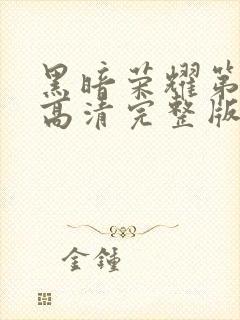 黑暗荣耀第
高清完整版
金锺